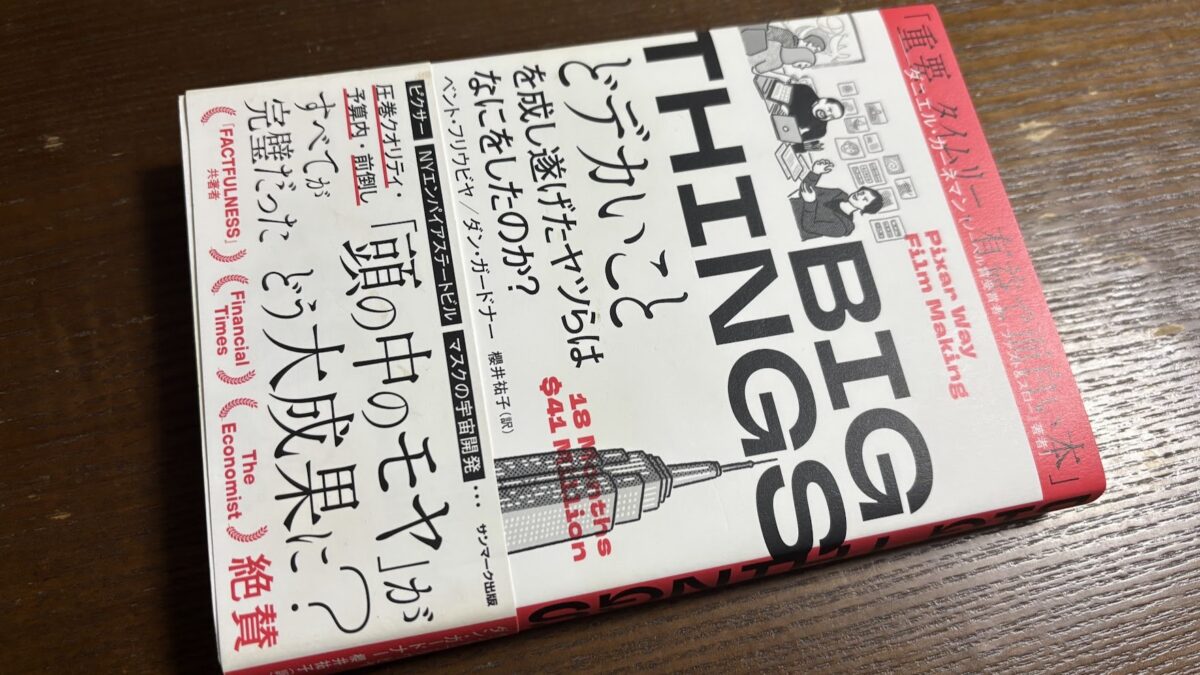 「重要、タイムリー
ダニエル・カーネマン
BIG
THINGS
Pixar Way
Film Making
どデカいこと
を成し遂げたヤツらは
なにをしたのか?
ベント・フリウビヤ/ダン・ガードナー 櫻井祐子(訳)
18 Months
$41 Million
ピクサー NYエンパイアステートビル マスクの宇宙開発…
圧巻クオリティ・
予算内・前倒し
「頭の中のモヤ」が
すべてが
完璧だった
どう大成果に?
「FACTFULNESS」
共著者
Financial
Times
The
Economist
絶賛
サンマーク出版
ダン・ガードナー 櫻井祐子(訳)